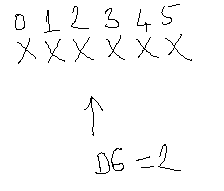 0 1 2 3 4 5
X X X X X X
DG = 2